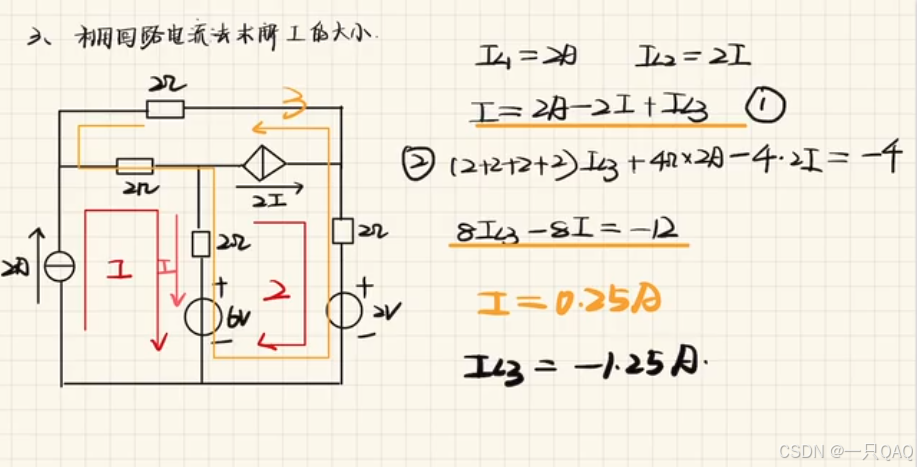 3、利用回路电流法求解I的大小.
2Ω
3
2Ω
2I
2A
1
I
2Ω
+
6V
-
2
2Ω
+
2V
-
IL1=2A IL2=2I
I=2A-2I+IL3 ①
② (2+2+2+2)IL3+4Ω×2A-4·2I=-4
8IL3-8I=-12
I=0.25A
IL3=-1.25A.
CSDN @一只QAQ